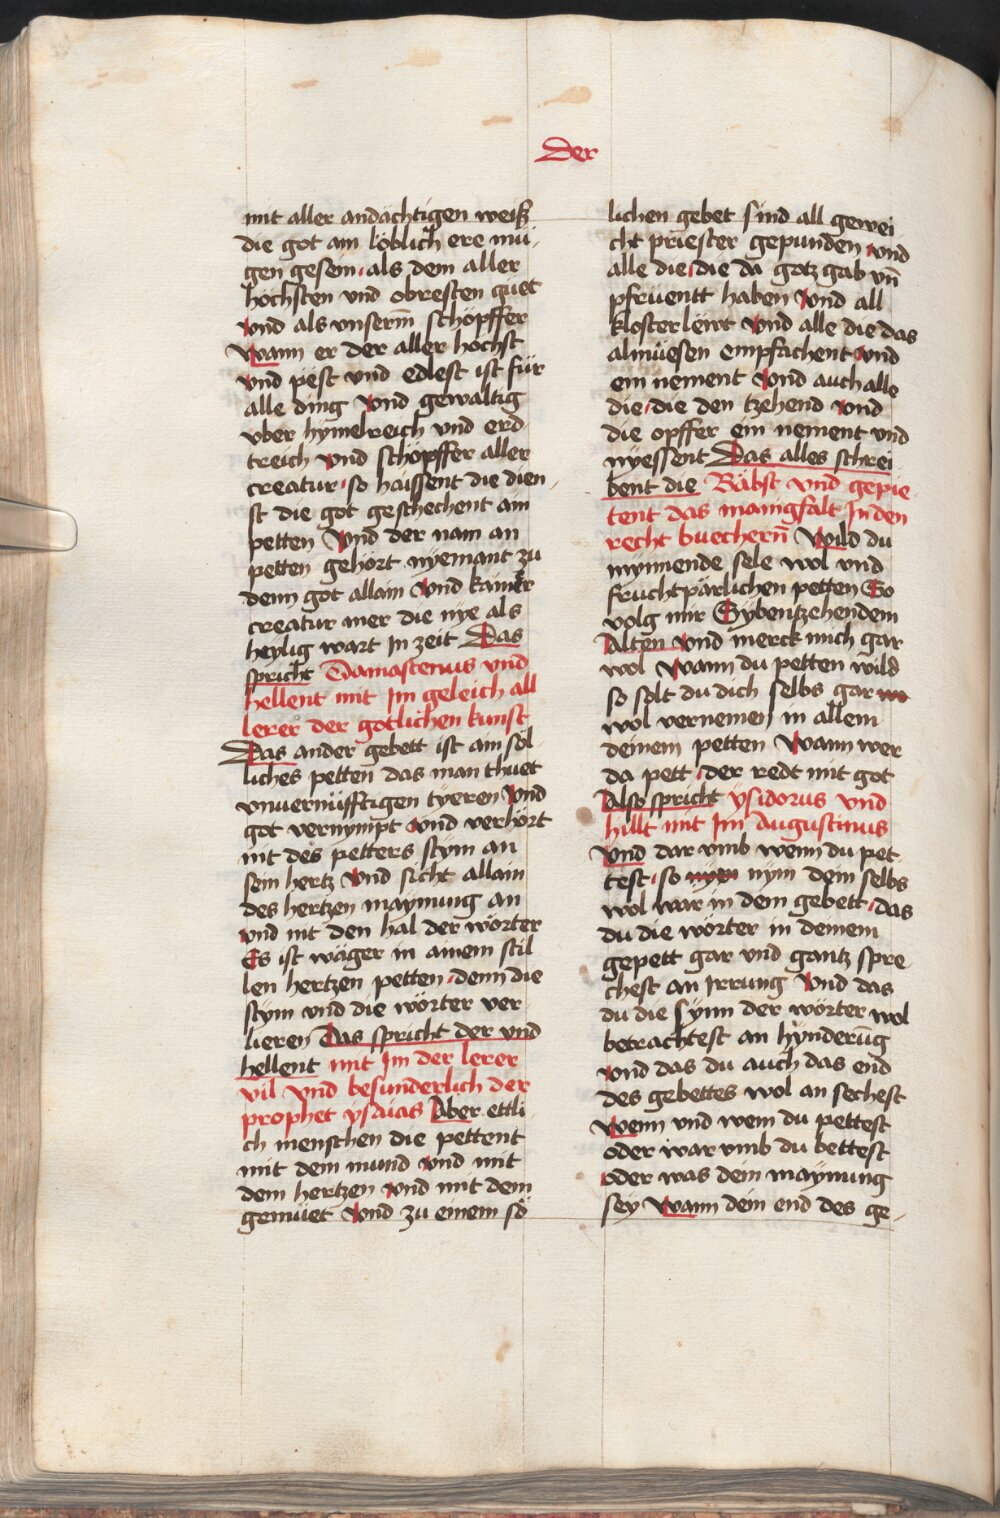 Der
mit aller andächtigen weiß
die got am löblich ere mü-
gen gesein, als dem aller
höchsten vnd obresten guet
vnd als vnserm̄ schöpffer
Wann er der aller höchst
vnd pest vnd edlest ist für
alle ding Vnd gewaltig
vber hymelreich vnd erd
treich vnd schöpffer aller
creatur, so haissent die dien-
st die got geschechent ain
petten Vnd der nam an
petten gehört nyemant zu
denn got allain Vnd kainer
creatur mer die nye als
heylig wart In zeit Das
spricht Damascenus vnd
hellent mit Im geleich all
lerer der gotlichen kunst
Das ander gebett ist ain söl
liches petten das man thuet
vnuernüfftigen tyeren Vnd
got vernympt Vnd verhört
nit des petters stym an
sein hertz Vnd sicht allain
des hertzen maynung an
vnd nit den hal der wörter
Es ist wäger in ainem stil
len hertzen petten, denn die
stym vnd die wörter ver
lieren Das spricht der vnd
hellent mit Im der lerer
vil vnd besunderlich der
prophet ysaias Aber ettli
ch menschen die pettent
mit dem mund Vnd mit
dem hertzen Vnd mit dem
gemüet Vnd zu einem sö
lichen gebet sind all gewei
cht priester gepunden, vnd
alle die, die da gotz gab vn̄
pfrüentt haben Vnd all
klosterlewt Vnd alle die das
almüesen empfachent Vnd
ein nement Vnd auch alle
die, die den tzehend Vnd
die opffer ein nement vnd
nyessent Das alles schrei
bent die Bäbst vnd gepie-
tent das manigfalt In den
recht buechern̄ Wild du
mynnende sele wol vnd
fruchtpärlichen petten So
volg mir Sybentzehendem
Alten Vnd merck mich gar
wol Wann du petten wild
so solt du dich selbs gar
wol vernemen in allem
deinem petten Wann wer
da pett, der redt mit got
Also spricht ysidorus vnd
hillt mit Im Augustinus
Vnd dar vmb wenn du pet
test, so nym dein selbs
wol war in dem gebett, das
du die wörter in deinem
gepett gar vnd gantz spre
chest an Irrung Vnd das
du die synn der wörter wol
betrachtest an hynderūg
vnd das du auch das end
des gebettes wol an sechest
Wenn vnd wem du pettest
oder war vmb du bettest
oder was dein maynung
sey Wann dein end des ge-